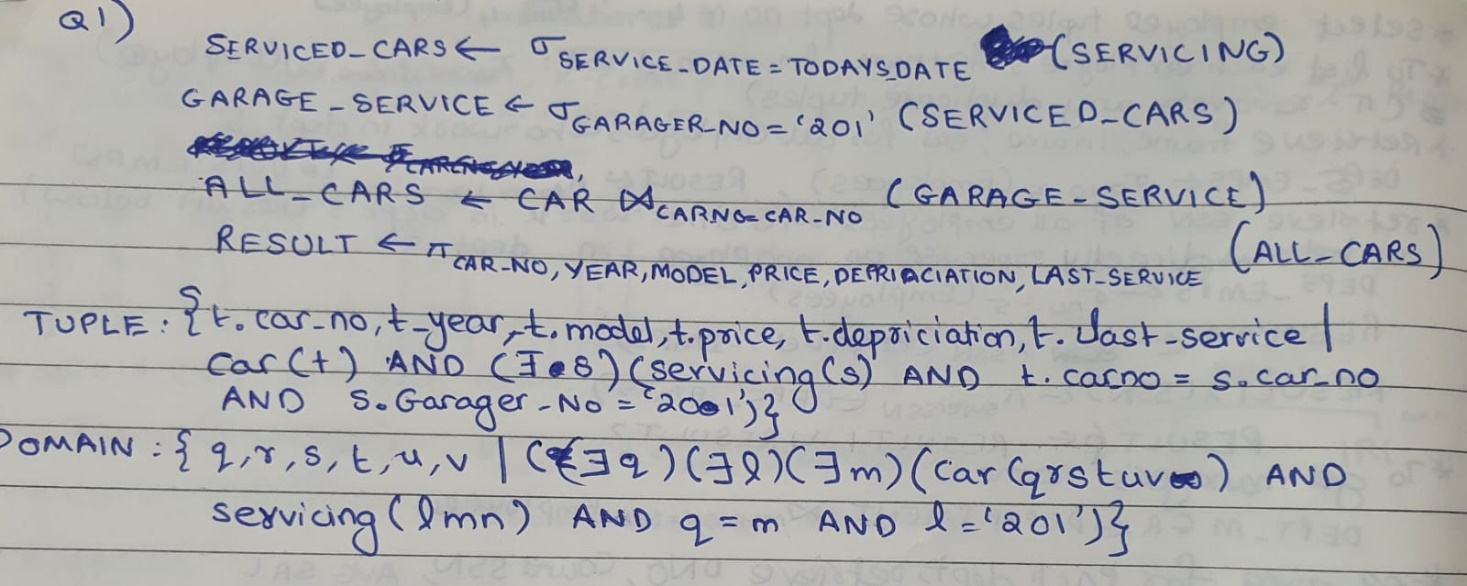 Q1)
SERVICED_CARS ← σ SERVICE_DATE = TODAYSDATE (SERVICING)
GARAGE_SERVICE ← σ GARAGER_NO = '201' (SERVICED_CARS)
ALL_CARS ← CAR ⋈ CARNO = CAR_NO (GARAGE_SERVICE)
RESULT ← π CAR_NO, YEAR, MODEL, PRICE, DEPRIACIATION, LAST_SERVICE (ALL_CARS)
TUPLE : {t.car_no, t_year, t.model, t.price, t.depriciation, t.last_service |
car(t) AND (∃s)(servicing(s) AND t.carno = s.car_no
AND s.Garager_No = '201')}
DOMAIN : {q,r,s,t,u,v | (∃q)(∃l)(∃m)(car(qrstuv) AND
servicing(lmn) AND q = m AND l = '201')}